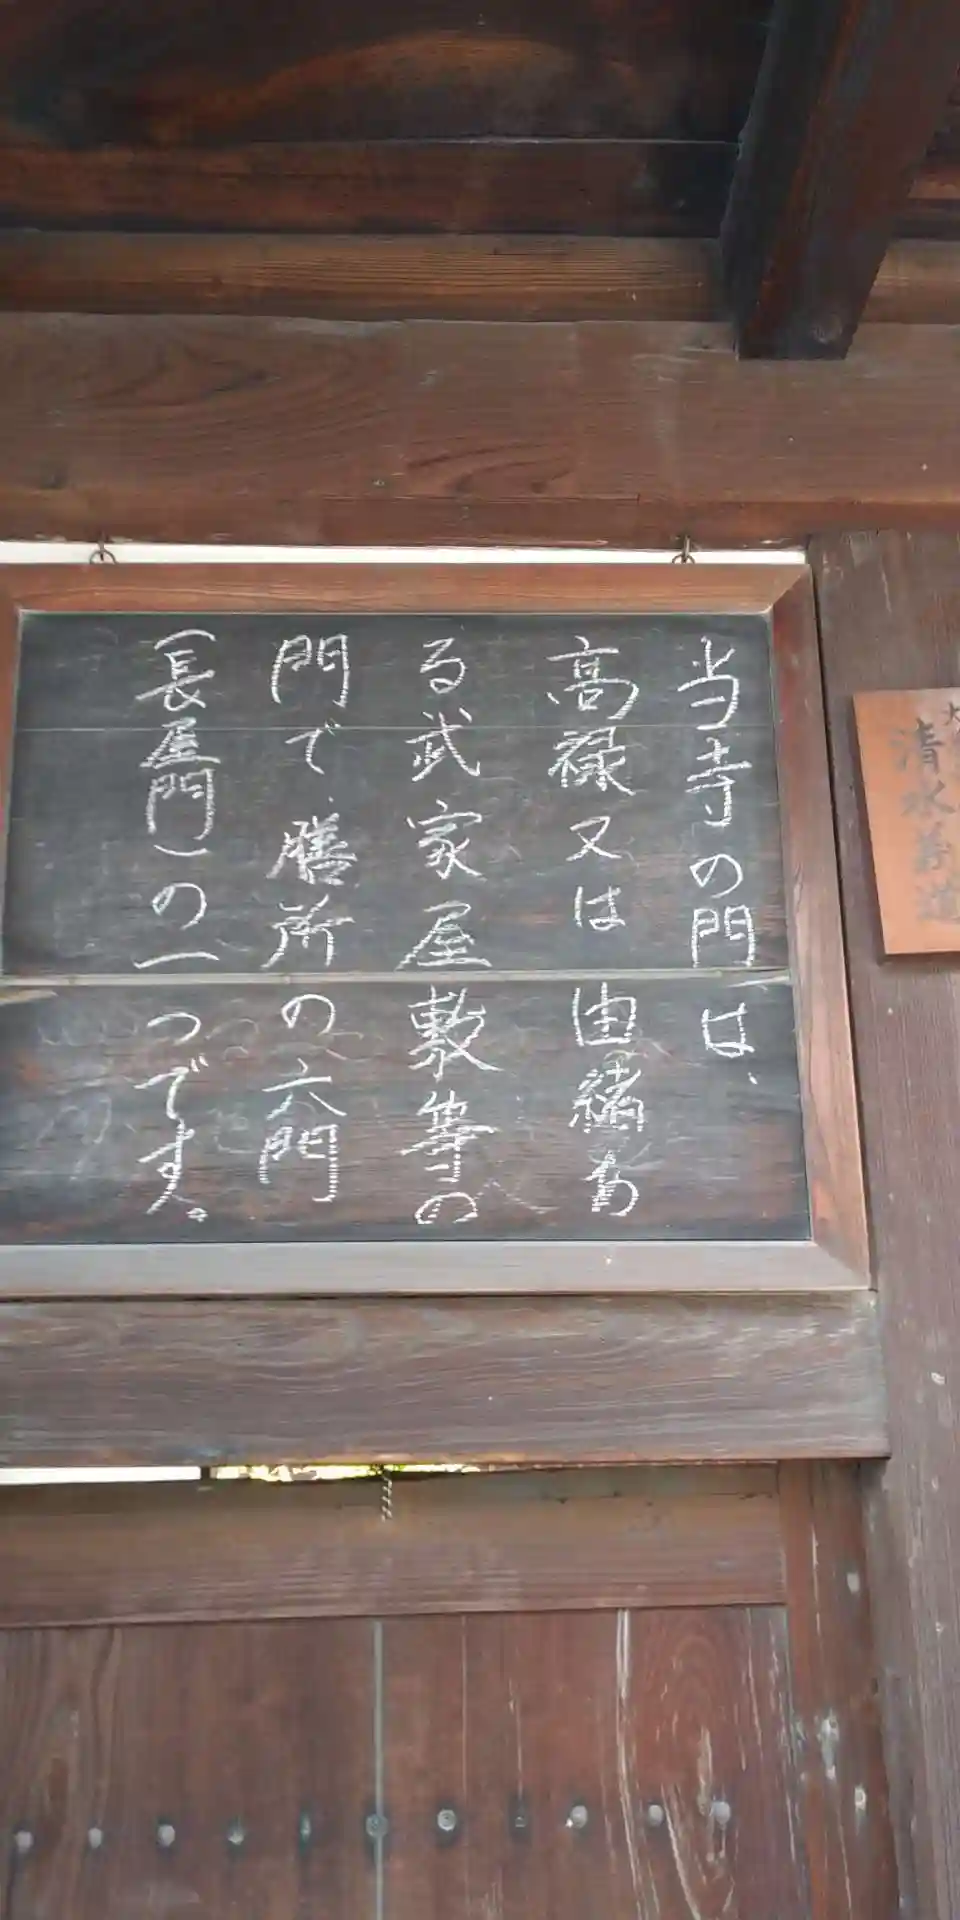 当寺の門は、
高禄又は由緒あ
る武家屋敷等の
門で、膳所の六門
(長屋門)の一つです。
清水